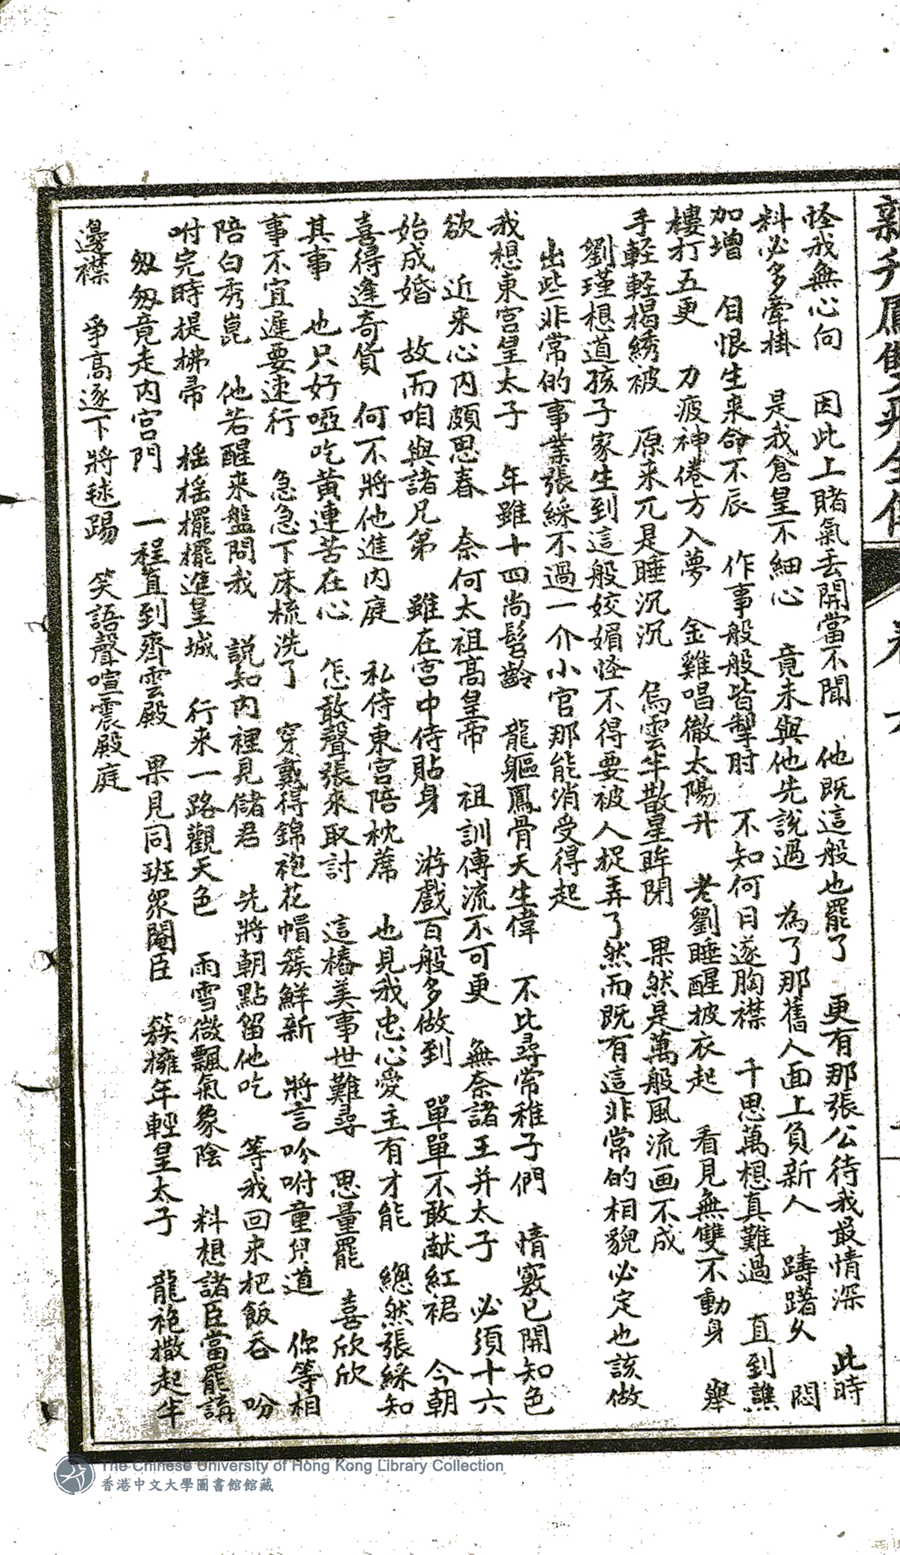 怪我無心向　因此上賭氣丢開當不聞　他既這般也罷了　更有那張公待我最情深　此時
料必多牽掛　是我倉皇不細心　竟未與他先說過　為了那舊人面上負新人　躊躇久　悶
加增　自恨生來命不辰　作事般般皆掣肘　不知何日遂胸襟　千思萬想真難過　直到譙
樓打五更　力疲神倦方入夢　金雞唱徹太陽升　老劉睡醒披衣起　看見無雙不動身　舉
手輕輕揭綉被　原来兀是睡沉沉　烏雲半散星眸閉　果然是萬般風流画不成
劉瑾想道孩子家生到這般姣媚怪不得要被人捉弄了然而既有這非常的相貌必定也該做
出些非常的事業張綵不過一介小官那能消受得起
我想東宮皇太子　年雖十四尚髫齡　龍軀鳳骨天生偉　不比尋常稚子們　情竅已開知色
欲　近来心内頗思春　奈何太祖高皇帝　祖訓傳流不可更　無奈諸王并太子　必須十六
始成婚　故而咱與諸兄弟　雖在宮中侍貼身　游戲百般多做到　單單不敢献紅裙　今朝
喜得逢奇貨　何不將他進内庭　私侍東宮陪枕蓆　也見我忠心愛主有才能　縂然張綵知
其事　也只好啞吃黄連苦在心　怎敢聲張来取討　這樁美事世難尋　思量罷　喜欣欣
事不宜遲要速行　急急下床梳洗了　穿戴得錦袍花帽簇鮮新　將言吩咐童兒道　你等相
陪白秀崑　他若醒来盤問我　説知内裡見儲君　先將朝點留他吃　等我回来杷飯吞　吩
咐完時提拂帚　榣榣擺擺進皇城　行来一路觀天色　雨雪微飄氣象陰　料想諸臣當罷講
匆匆竟走内宮門　一程直到齊雲殿　果見同班眾閹臣　簇擁年輕皇太子　龍袍撒起半
邊襟　爭高逐下將毬踢　笑語聲喧震殿庭
The Chinese University of Hong Kong Library Collection
香港中文大學圖書館館藏